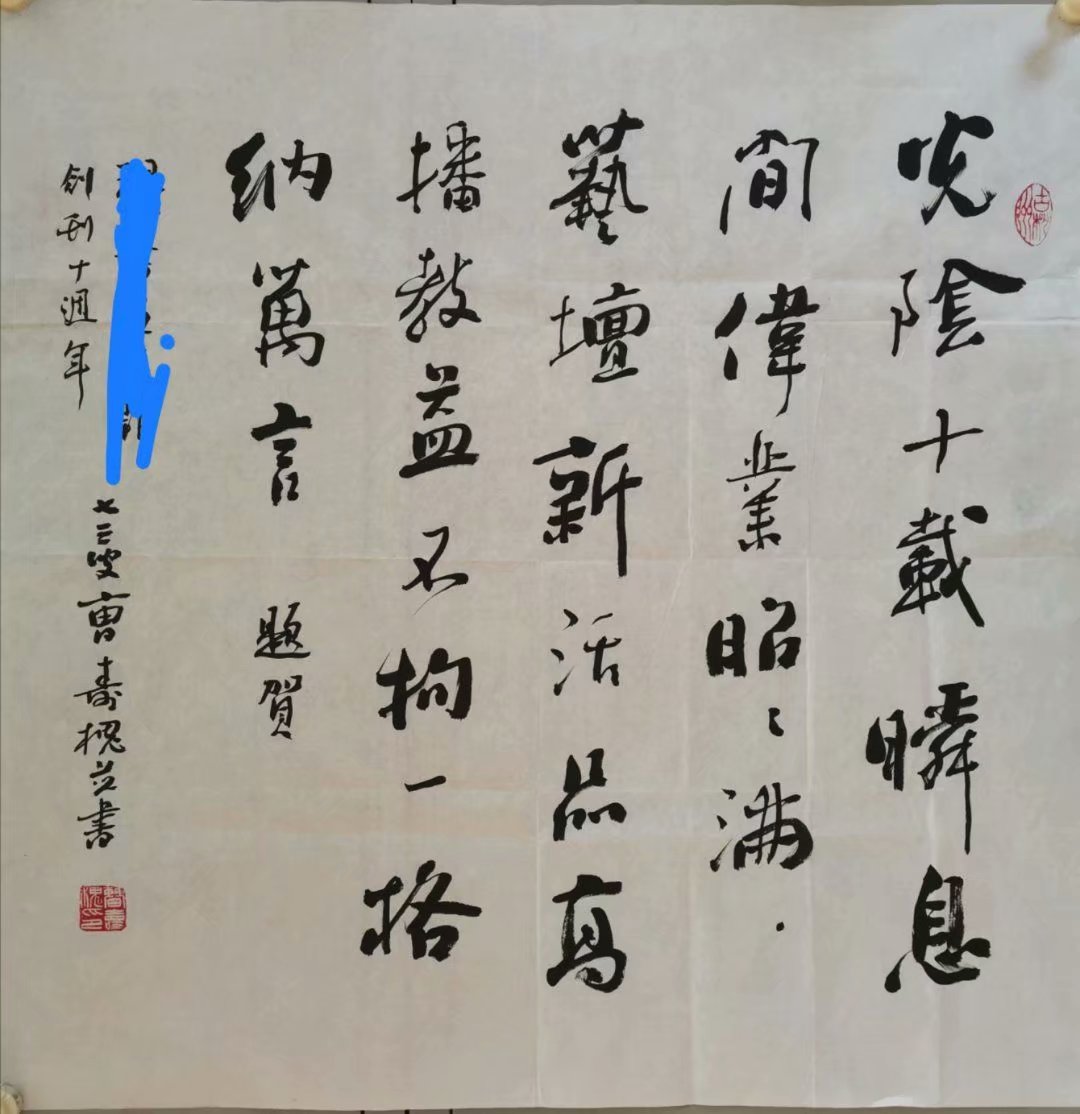 光陰十載瞬息
間偉業昭〻满
藝壇新活品高
播教益不拘一格
納萬言 題賀
創刊十週年
七三叟曹壽槐並書
曹壽槐印